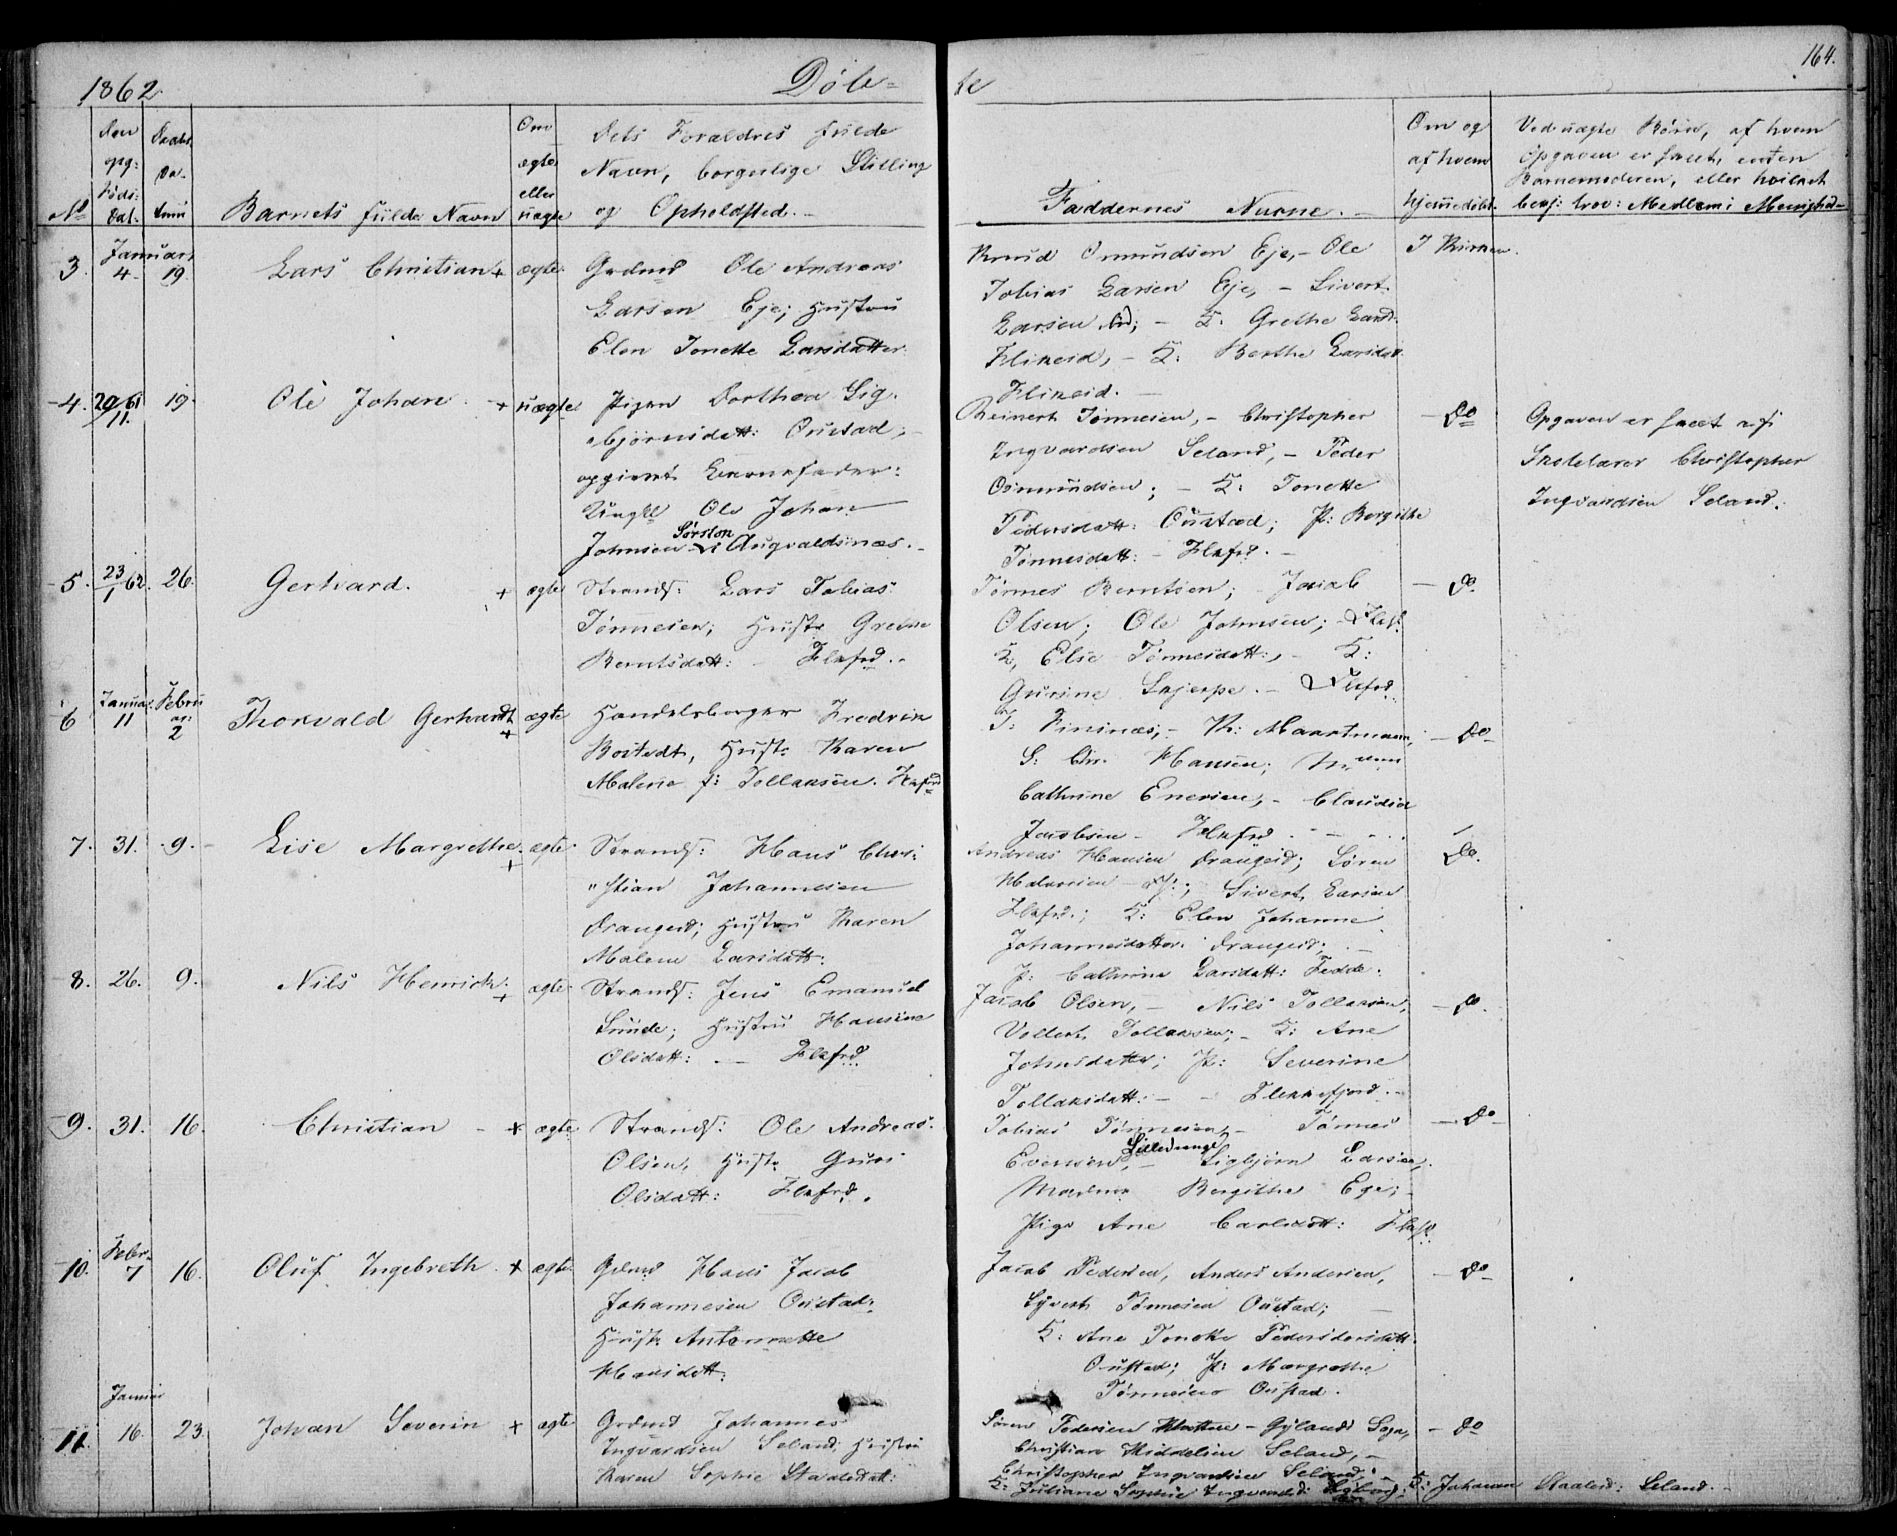 1862
Døb-
te
164.
Den
opg:
Føds:
Dat.
Daabs
Da-
tum
Om
ægte
eller
uægte
Dets Forældres fulde
Navn, borgerlige Stilling
og Opholdsted.
Om og
af hvem
hjemmedøbt
Ved uægte Børn, af hvem
Opgaven er skeet, enten
Barnemoderen, eller hvilket
No
Barnets fulde Navn
Faddernes Navne.
3.
Januar
4 - 19.
Lars Christian + ægte
Grdmd Ole Andreas
Larsen Eje; Hustru
Elen Tonette Larsdatter
Knud Omundsen Eje, - Ole
Tobias Larsen Eje, - Sivert
Larsen
K: Grethe
Flikeid, - K: Berthe Larsdatt
Flikeid.
I Kirken.
4. 20/11 61 19.
Ole Johan. + uægte
Pigen Dorthea Sig-
bjørnsdatt: Oustad;
opgivet Barnefader:
Ungkl Ole Johan
Johnsen Sørston i Augvaldsnæs.
Reinert Tønnesen, - Christopher
Ingvardsen Seland, - Peder
Osmundsen; - K: Tonette
Pedersdatt: Oustad; P: Bergithe
Tønnesdatt: - Flkfrd.
- Do
Opgaven er skeet af
Skolelærer Christopher
Ingvardsen Seland.
5. 23/1 62. 26.
Gerhard. + ægte
Strands: Lars Tobias
Tønnesen; Hustr Grethe
Berntsdatt: - Flkfrd.
Tønnes Berntsen; Jacob
Olsen; Ole Johnsen; - Flkf.
K, Else Tønnesdatt:, - K:
Gurine Skjerpe. - Flkfrd.
- Do
6
Januar
11
Febru
ar:
2
Thorvald Gerhardt + ægte
Handelsborger Fredrik
Bostedt, Hustr Karen
Malene f: Tollaksen. Flkfrd
- K: Maartmann,
S. Chr. Hansen;
Cathrine Enersen, - Claudia
Jacobsen - Flkfrd.
- Do -
7. 31. 9.
Lise Margrethe. + ægte
Strands: Hans Chri-
"stian Johannesen
Drangeid; Hustru Karen
Malene Larsdatt:
Andreas Hansen Drangeid; Søren
Sivert Larsen
Flkfrd.; K: Elen Johanne
Johannesdatter Drangeid;
P: Cathrine Larsdatt: Fedde.
Do.
8. 26. 9.
Nils Henrich. + ægte
Strands: Jens Emanuel
Sunde; Hustru Hansine
Olsdatt: - Flkfrd
Jacob Olsen, - Nils Tollaksen,
Vollert Tollaksen; - K: Ane
Johnsdatter; P: Severine
Tollaksdatt: - Flekkefjord.
- Do.
9. 31. 16.
Christian - + ægte
Strands: Ole Andreas
Olsen, Hustr Guri
Olsdatt: Flkfrd.
Tobias Tønnesen, - Tønnes
Evensen, Lilledrange Sigbjørn Larsen,
Bergithe Eje;
Pige Ane Carlsdatt: Flkf.
- Do -
10.
Febr.
7 16.
Oluf Ingebreth. + ægte
Grdmd Hans Jacob
Johannesen Oustad:
Hustr Antonette
Hansdatt.
Jacob Pedersen, Anders Andersen,
Syvert Tønnesen Oustad;
K: Ane Tonette Pedersdatt
Oustad; P: Margrethe
Tønnesen Oustad.
- Do -
Januar
11. 16. 23
Johan Severin + ægte
Grdmd Johannes
Ingvardsen Seland; Hustru
Karen Sophie Staalesdatt:
Søren Pedersen - Gylands Sogn,
Christian Middelsen Seland, -
Christopher Ingvardsen Seland,
K: Juliane Sophie Ingvardsd:
K: Johanne Staalesd: Seland.
- Do